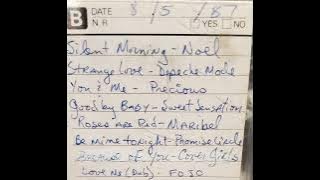 B DATE 8/5/87
N.R. YES NO
Silent Morning - Noel
Strange Love - Depeche Mode
You & Me - Precious
Good by BABY - Sweet Sensation
Roses are Red - MARibel
Be mime tonight - Promise Circle
Because of You - Cover Girls
Love Ns (Dub) - FOJO